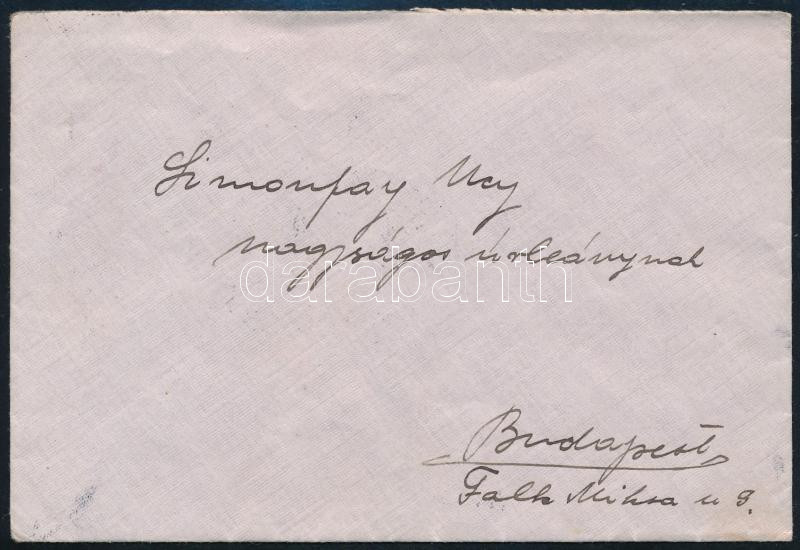 Simonfay Ucy
nagyságos úrleánynak
darabanth
Budapest
Falk Miksa u 9.